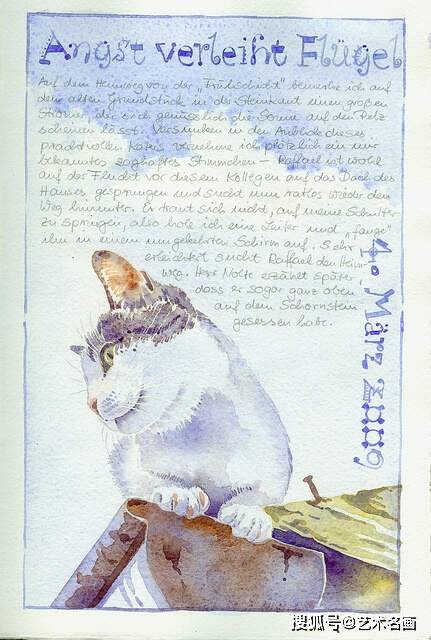 Angst verleiht Flügel
Auf dem Heimweg von der „Frühschicht" bemerke ich auf
dem alten Grundstück in der Steinkaut einen großen
Streuner der sich genüsslich die Sonne auf den Pelz
scheinen lässt. Versunken in den Anblick dieses
prachtvollen Katers vernehme ich plötzlich ein mir
bekanntes zaghaftes Stimmchen – Raffael ist wohl
auf der Flucht vor diesem Kollegen auf das Dach des
Hauses gesprungen und sucht nun ratlos wieder den
Weg hinunter. Er traut sich nicht, auf meine Schulter
zu springen, also hole ich eine Leiter und „fange"
ihn in einem umgekehrten Schirm auf. Sehr
erleichtert sucht Raffael den Heim
weg. Herr Nolte erzählt später,
dass er sogar ganz oben
auf dem Schornstein
gesessen habe.
4. März 2009
搜狐号@艺术名画